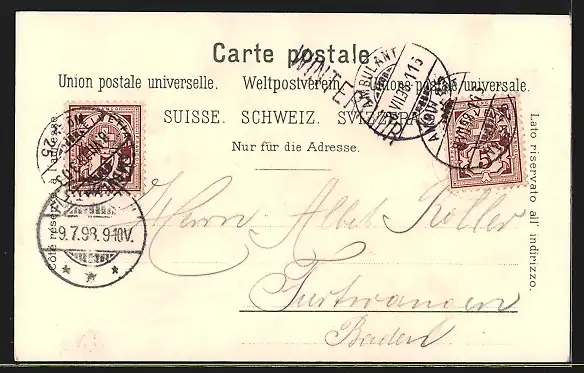 Carte postale
Union postale universelle. Weltpostverein. Unione postale universale.
SUISSE. SCHWEIZ. SVIZZERA.
Nur für die Adresse.
Côté réservé à l'adresse.
Lato riservato all' indirizzo.
WINTERTHUR
AMBULANT
5
5
9.7.98.9-10V.
Herrn Albert Koller
Furtwangen
Baden